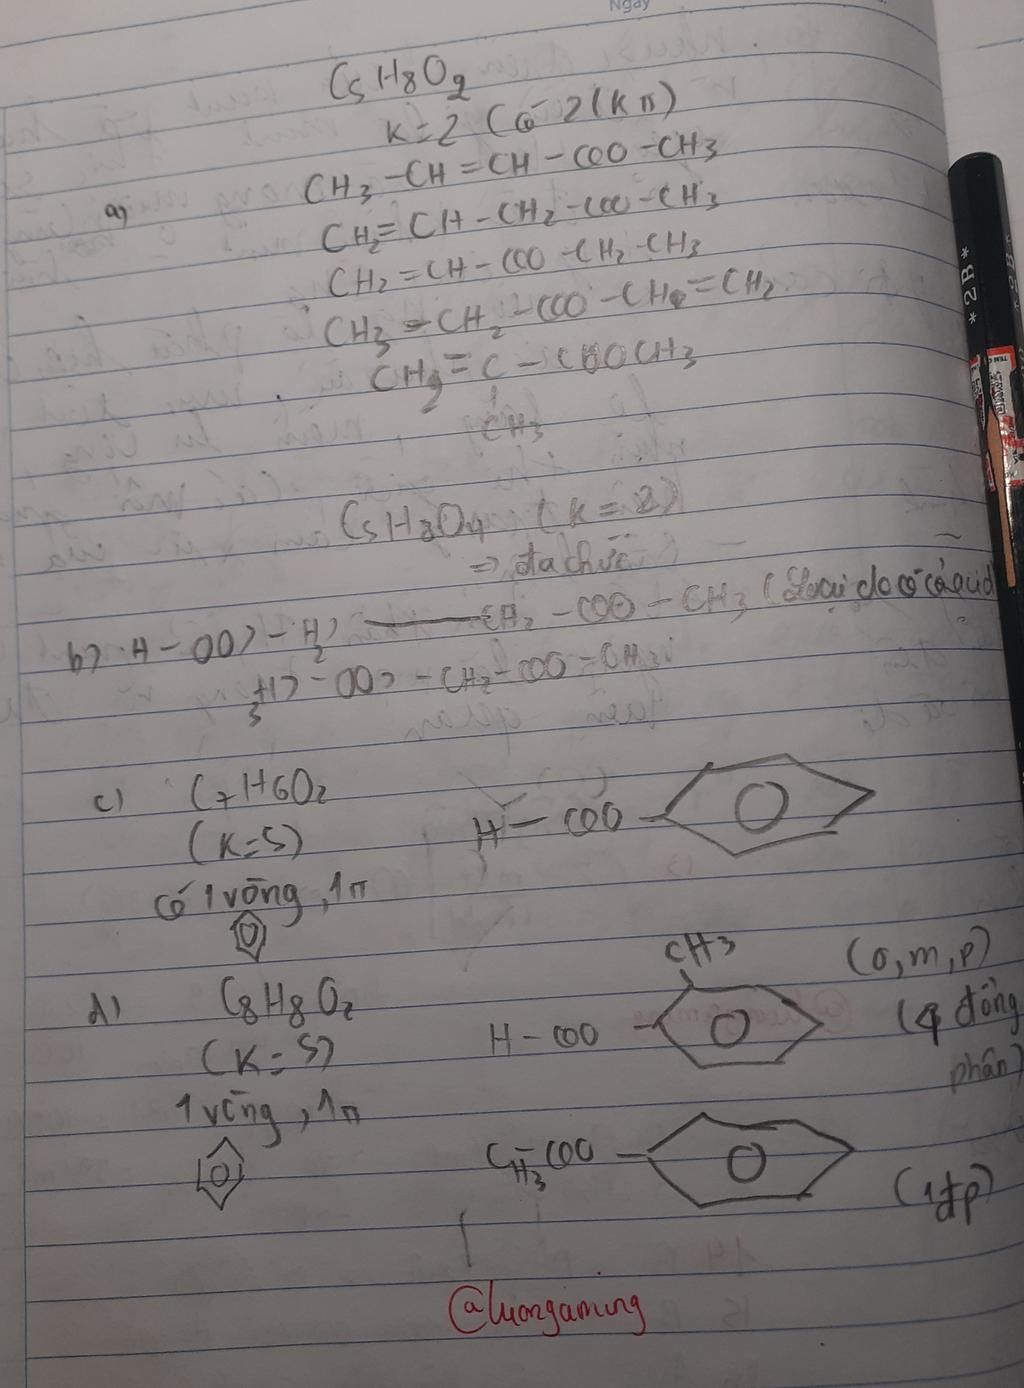 Ngày
C5H8O2
K=2 Có 2(Kπ)
a) CH3-CH=CH-COO-CH3
CH2=CH-CH2-COO-CH3
CH2=CH-COO-CH2-CH3
CH3-CH2-COO-CH2=CH2
CH2=C-COOCH3
CH3
C5H8O4 (K=2)
=> đa chức
b) H-OOC-H2C-CH2-COO-CH3 (Loại do có cả acid
CH3-OOC-CH2-COO-CH3
c) C7H6O2
(K=5)
có 1 vòng, 1π
H-COO
d) C8H8O2
(K=5)
1 vòng, 1π
CH3
(o,m,p)
H-COO
đồng
phân)
CH3-COO
(1đp)
@luongaming
*2B*